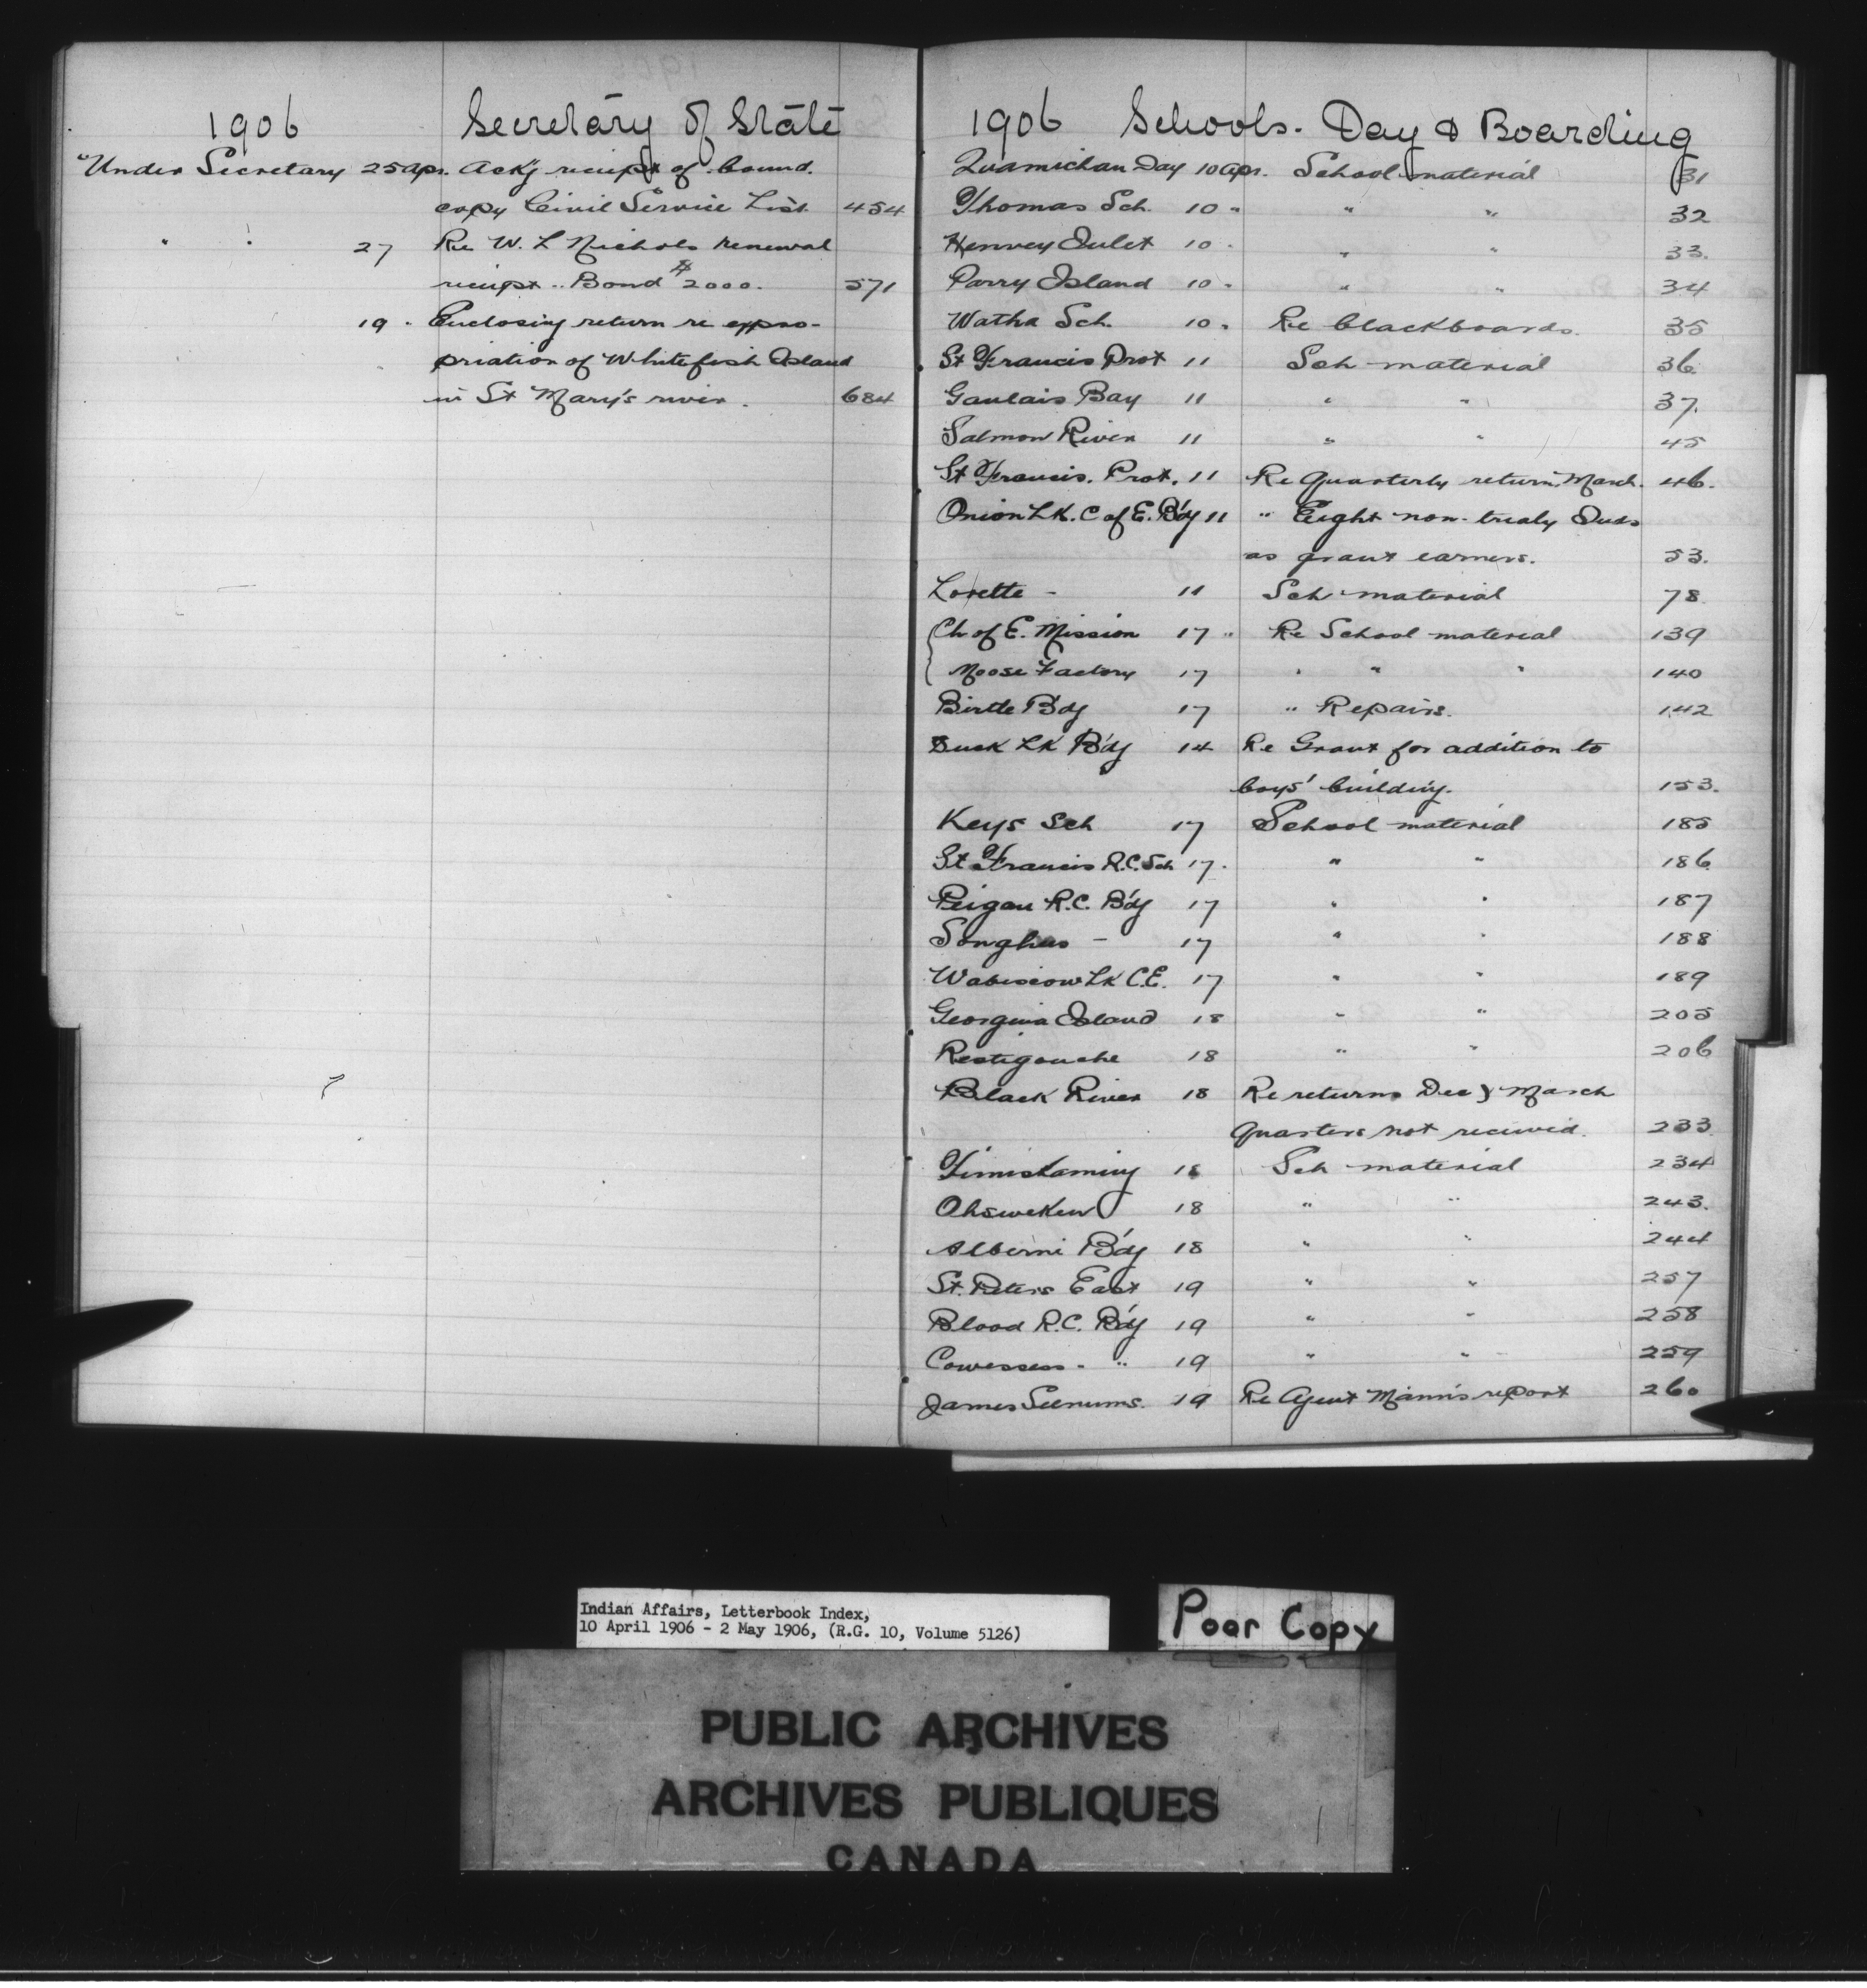 1906 Secretary of State
Under Secretary 25 Apr. Ack'g receipt of bound.
copy Civil Service List 454
" " 27 Re W. L Nichols renewal
receipt .. Bond $2000. 571
19 . Enclosing return re appro-
priation of Whitefish Island
in St Mary's river. 684
1906 Schools. Day & Boarding
Quamichan Day 10 Apr. School material 31
Thomas Sch. 10 " " " 32
Henvey Inlet 10 " " " 33.
Parry Island 10 " " " 34
Watha Sch. 10 " Re blackboards. 35
St Francis Prot 11 Sch material 36
Gaulais Bay 11 " " 37.
Salmon River 11 " " 45
St Francis. Prot. 11 Re Quarterly return, March. 46.
Onion Lk. C of E. B'dg 11 " Eight non-treaty Inds
as grant earners. 53.
Lorette - 11 Sch material 78
Ch of E. Mission 17 " Re School material 139
Moose Factory 17 " " " 140
Birtle B'dg 17 " Repairs. 142
Duck Lk B'dg 14 Re Grant for addition to
boys' building. 153.
Keys Sch 17 School material 185
St Francis R.C. Sch 17. " " 186
Peigan R.C. B'dg 17 " " 187
Songhus - 17 " " 188
Wabiscow Lk C.E. 17 " " 189
Georgina Island 18 " " 205
Restigouche 18 " " 206
Black River 18 Re returns Dec & March
Quarters not received. 233
Timiskaming 18 Sch material 234
Ohsweken 18 " " 243.
Alberni B'dg 18 " " 244
St. Peters East 19 " " 257
Blood R.C. B'dg 19 " " 258
Cowessess - " 19 " " 259
James Seenums. 19 Re Agent Mann's report 260
Indian Affairs, Letterbook Index,
10 April 1906 - 2 May 1906, (R.G. 10, Volume 5126)
Poor Copy
PUBLIC ARCHIVES
ARCHIVES PUBLIQUES
CANADA